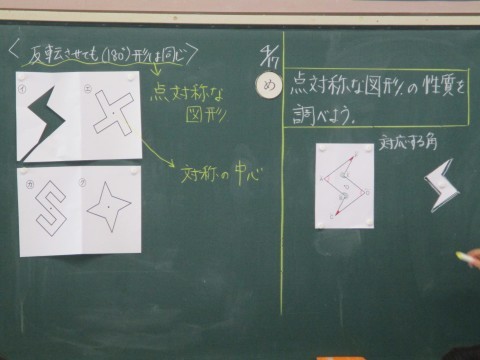 <反転させても(180°)形は同じ>
点対称な
図形
対称の中心
4/17
め
点対称な図形の性質を
調べよう。
対応する角